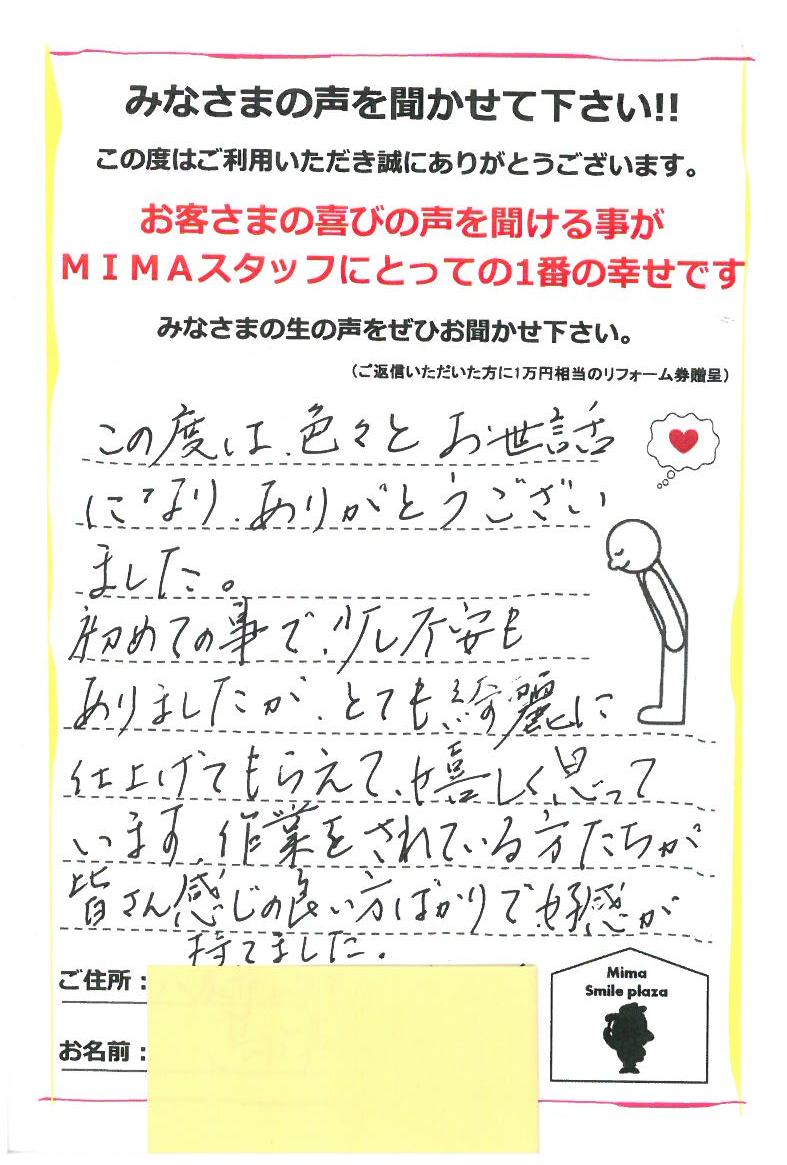 みなさまの声を聞かせて下さい!!
この度はご利用いただき誠にありがとうございます。
お客さまの喜びの声を聞ける事が
MIMAスタッフにとっての1番の幸せです
みなさまの生の声をぜひお聞かせ下さい。
（ご返信いただいた方に1万円相当のリフォーム券贈呈）
この度は、色々とお世話
になり、ありがとうござい
ました。
初めての事で、少し不安も
ありましたが、とても綺麗に
仕上げてもらえて、嬉しく思って
います。作業をされている方たちが
皆さん感じの良い方ばかりで、好感が
持てました。
ご住所：
お名前：
Mima
Smile plaza